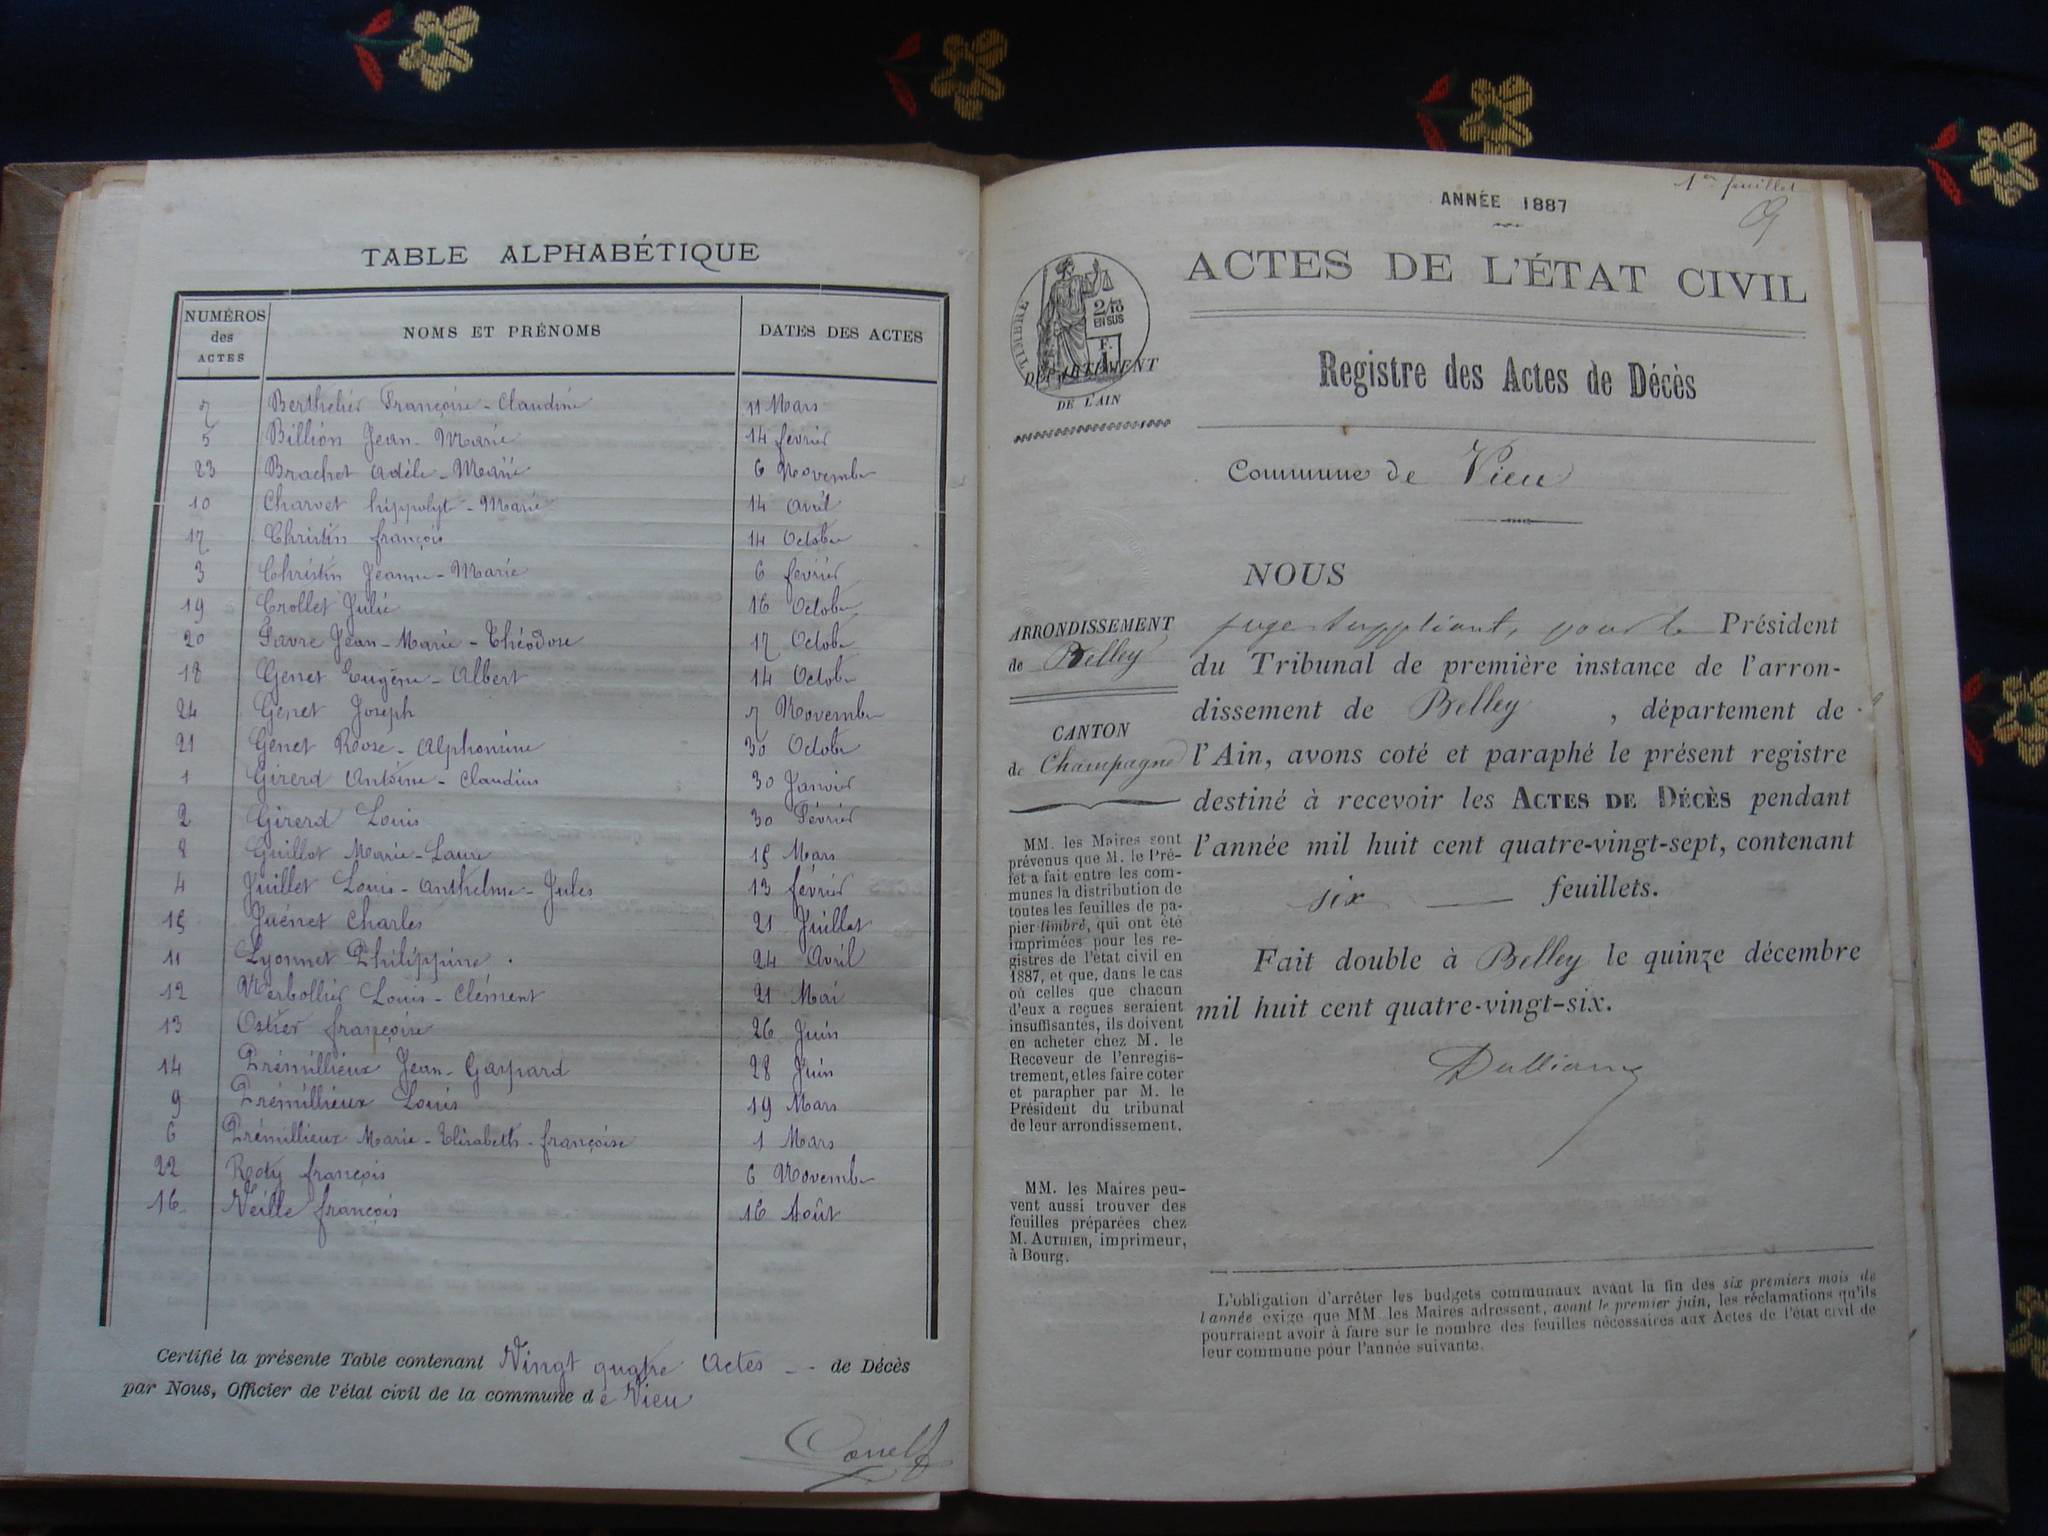 TABLE ALPHABÉTIQUE
NUMÉROS des ACTES NOMS ET PRÉNOMS DATES DES ACTES
7 Berthelier Françoise-Claudine 11 Mars
5 Billion Jean-Marie 14 février
23 Brachet Adèle-Marie 6 Novembre
10 Charvet hippolyt-Marie 14 avril
17 Christin françois 14 Octobre
3 Christin Jeanne-Marie 6 février
19 Crollet Julie 16 Octobre
20 Favre Jean-Marie-Théodore 17 Octobre
18 Genet Eugène-Albert 14 Octobre
24 Genet Joseph 7 Novembre
21 Genet Rose-Alphonsine 30 Octobre
1 Girerd Antoine-Claudius 30 Janvier
2 Girerd Louis 30 Février
8 Guillot Marie-Laure 15 Mars
4 Juillet Louis-Anthelme-Jules 13 février
15 Juénet Charles 21 Juillet
11 Lyonnet Philippine 24 Avril
12 Louis-Clément 21 Mai
13 Ostier françoise 26 Juin
14 Prémillieux Jean-Gaspard 28 Juin
9 Prémillieux Louis 19 Mars
6 Prémillieux Marie-Elisabeth-françoise 1 Mars
22 Rody françois 6 Novembre
16 Veille françois 16 Août
Certifié la présente Table contenant Vingt quatre Actes de Décès
par Nous, Officier de l'état civil de la commune de Vieu
1er feuillet
ANNÉE 1887
ACTES DE L'ÉTAT CIVIL
TIMBRE
2/10
EN SUS
F.
1
DÉPARTEMENT
DE L'AIN
Registre des Actes de Décès
Commune de Vieu
ARRONDISSEMENT
de Belley
CANTON
de Champagne
MM. les Maires sont
prévenus que M. le Pré-
fet a fait entre les com-
munes la distribution de
toutes les feuilles de pa-
pier timbré, qui ont été
imprimées pour les re-
gistres de l'état civil en
1887, et que, dans le cas
où celles que chacun
d'eux a reçues seraient
insuffisantes, ils doivent
en acheter chez M. le
Receveur de l'enregis-
trement, et les faire coter
et parapher par M. le
Président du tribunal
de leur arrondissement.
MM. les Maires peu-
vent aussi trouver des
feuilles préparées chez
M. AUTHIER, imprimeur,
à Bourg.
NOUS
juge suppléant, pour le Président
du Tribunal de première instance de l'arron-
dissement de Belley, département de
l'Ain, avons coté et paraphé le présent registre
destiné à recevoir les ACTES DE DÉCÈS pendant
l'année mil huit cent quatre-vingt-sept, contenant
six feuillets.
Fait double à Belley le quinze décembre
mil huit cent quatre-vingt-six.
L'obligation d'arrêter les budgets communaux avant la fin des six premiers mois de
l'année exige que MM. les Maires adressent, avant le premier juin, les réclamations qu'ils
pourraient avoir à faire sur le nombre des feuilles nécessaires aux Actes de l'état civil de
leur commune pour l'année suivante.